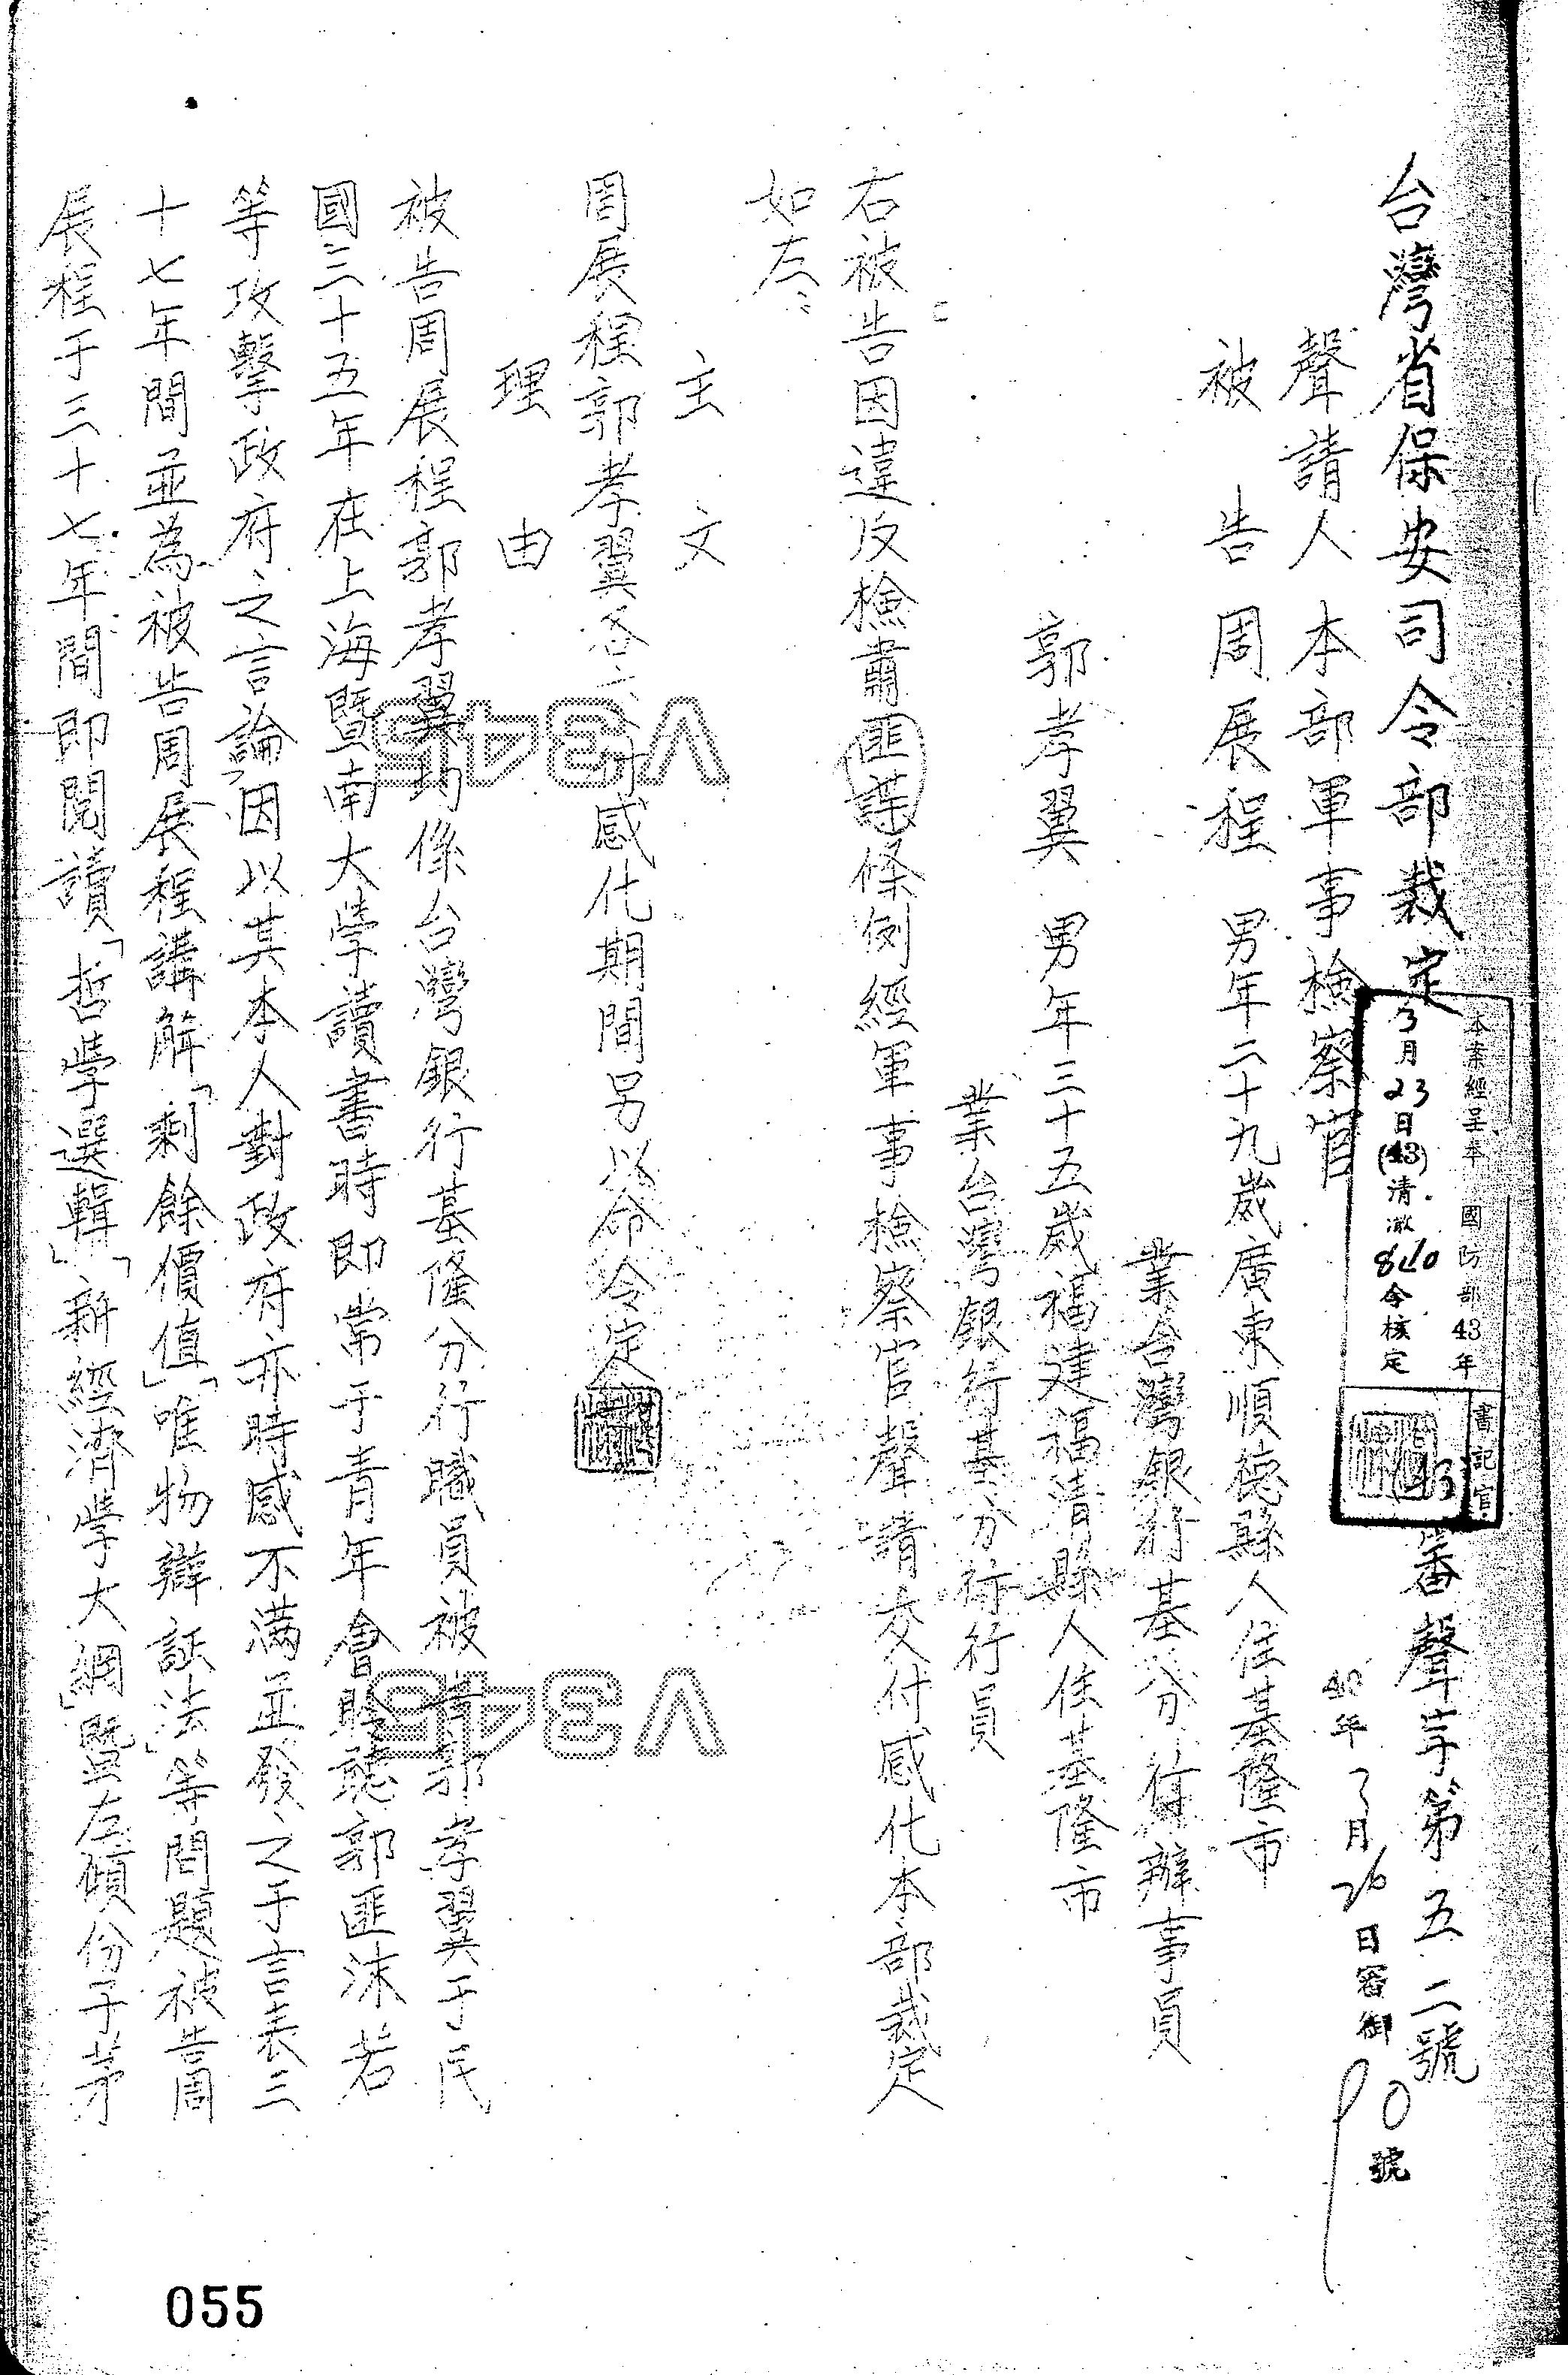 台灣省保安司令部裁定
審聲字第五二號
本案經呈奉 國防部43年
3月23日(43)清澈810令核定
書記官
年3月26日審御90號
聲請人 本部軍事檢察官
被告 周展程 男年二十九歲廣東順德縣人住基隆市
業台灣銀行基分行辦事員
郭孝翼 男年三十五歲福建福清縣人住基隆市
業台灣銀行基分行行員
右被告因違反檢肅匪諜條例經軍事檢察官聲請交付感化本部裁定
如左:
主文
周展程郭孝翼各交付感化期間另以命令定
理由
被告周展程郭孝翼均係台灣銀行基隆分行職員被告郭孝翼于民
國三十五年在上海暨南大學讀書時即常于青年會聆聽郭匪沫若
等攻擊政府之言論因以其本人對政府亦時感不滿並發之于言表三
十七年間並為被告周展程講解「剩餘價值」「唯物辯証法」等問題被告周
展程于三十七年間即閱讀「哲學選輯」「新經濟學大綱」暨左傾份子茅
V345
V345
055